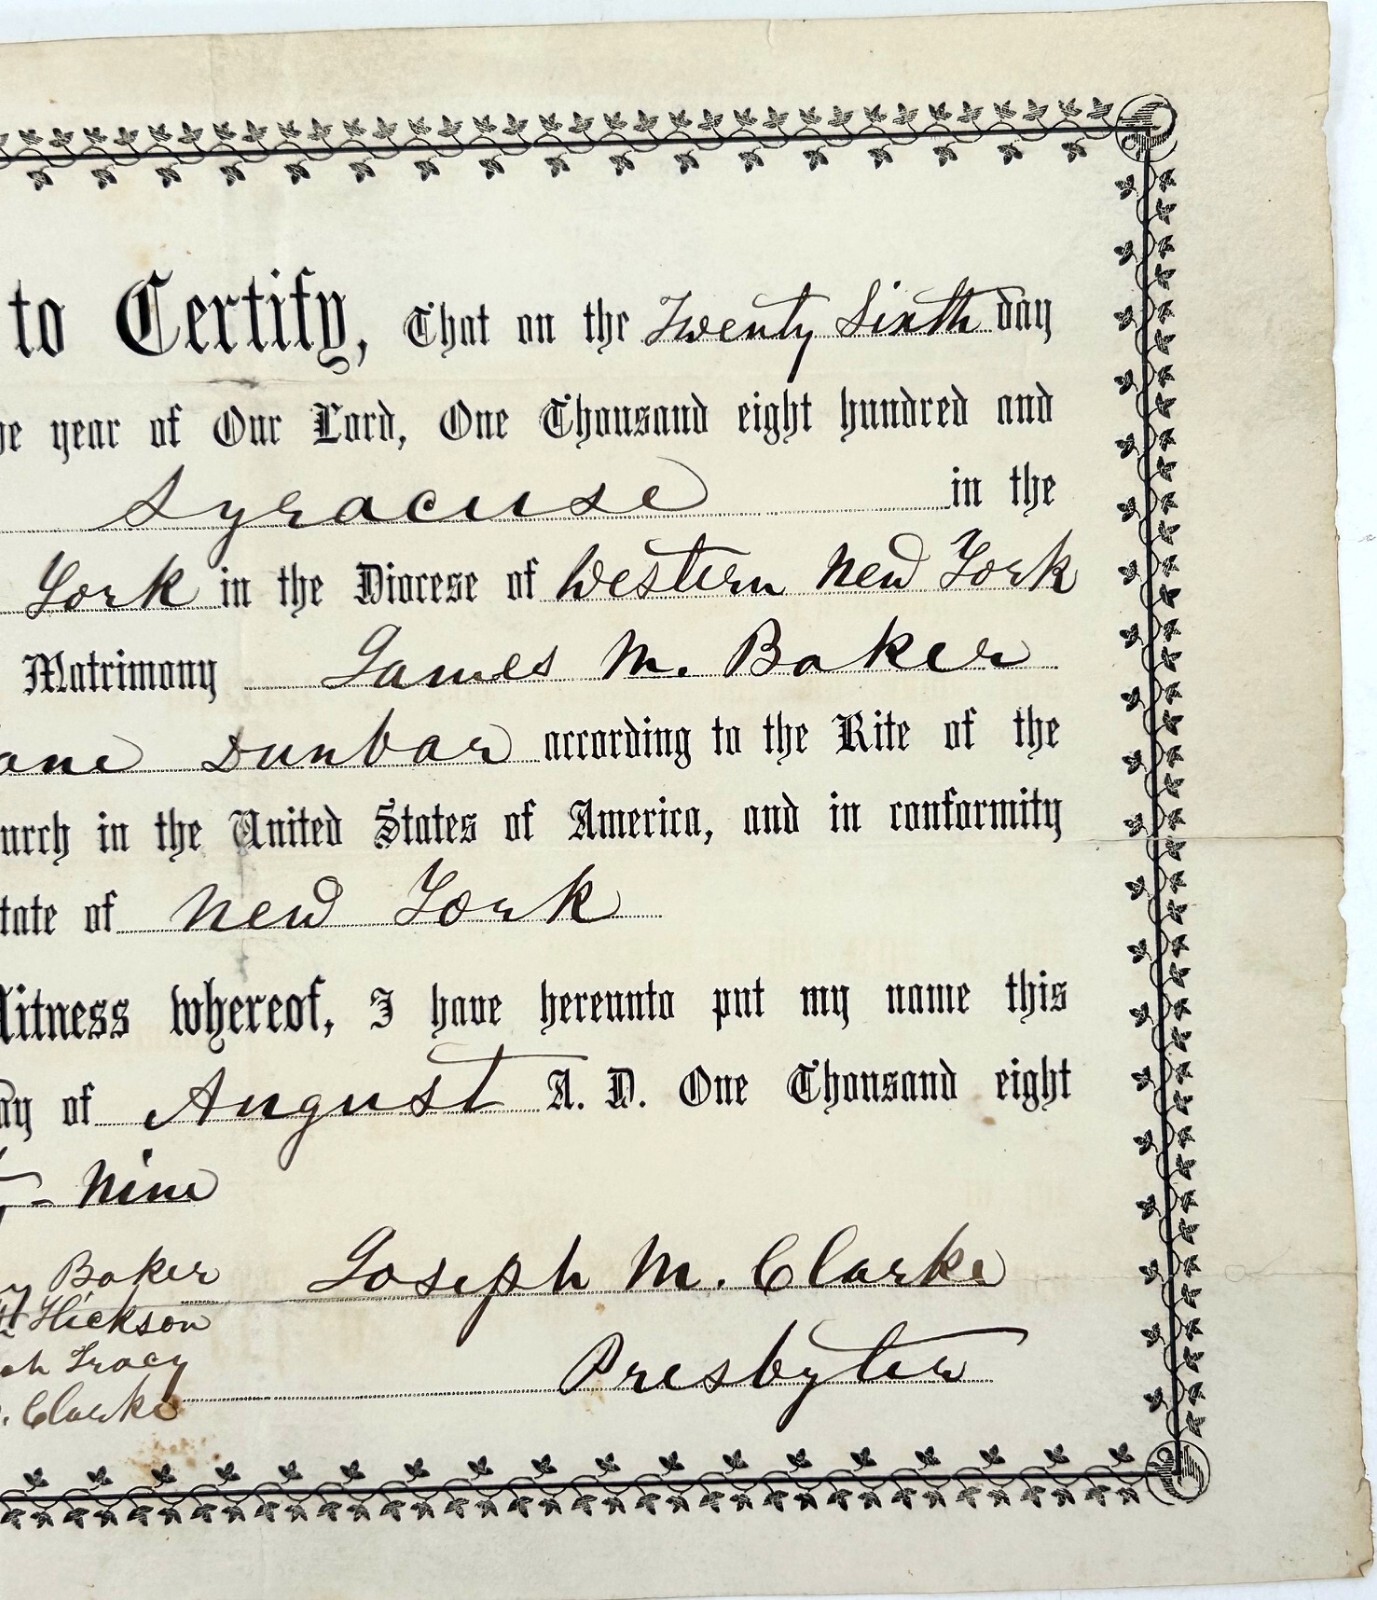 to Certify, That on the Twenty Sixth day
he year of Our Lord, One Thousand eight hundred and
Syracuse in the
York in the Diocese of Western New York
Matrimony James M. Baker
ane Dunbar according to the Rite of the
urch in the United States of America, and in conformity
tate of New York
Witness whereof, I have hereunto put my name this
ay of August A. D. One Thousand eight
y-Nine
y Baker Joseph M. Clarke
Hickson
ah Tracy Presbyter
. Clarke